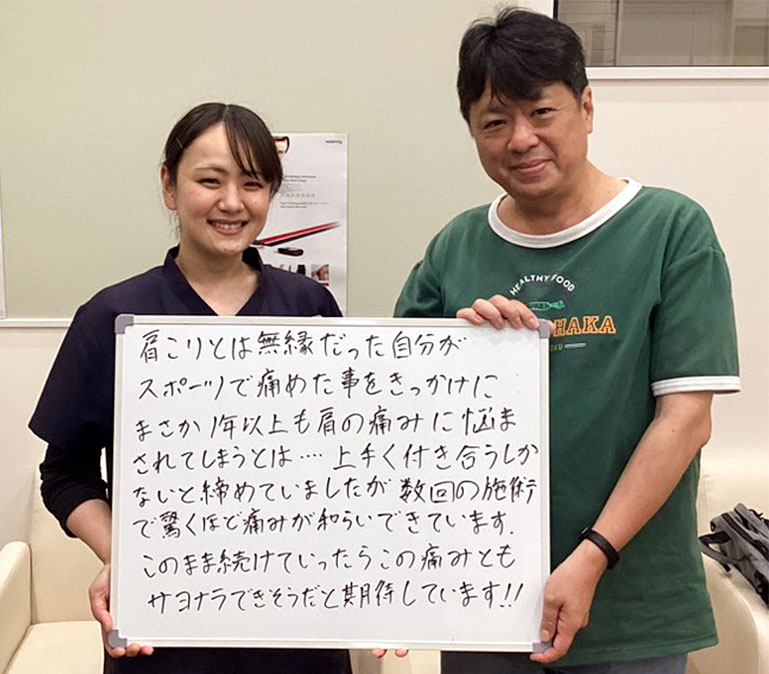 肩こりとは無縁だった自分が
スポーツで痛めた事をきっかけに
まさか1年以上も肩の痛みに悩ま
されてしまうとは…. 上手く付き合うしか
ないと締めていましたが数回の施術
で驚くほど痛みが和らいできています.
このまま続けていったらこの痛みとも
サヨナラできそうだと期待しています!!
HEALTHY FOOD
HAKA